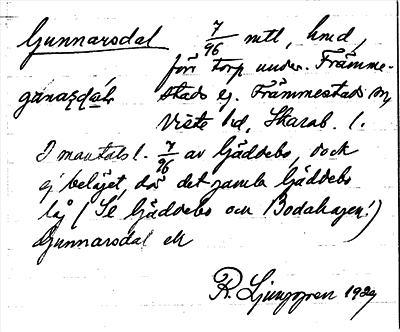 Gunnarsdal 7/96 mtl, hmd,
förr torp under Främme-
stads ej. Främmestads sn,
Viste hd, Skarab. l.
I mantalsl. 7/96 av Gäddebo, dock
ej beläget, där det gamla Gäddebo
låg (Se Gäddebo och Bodahagen!)
Gunnarsdal
R. Ljunggren 1929